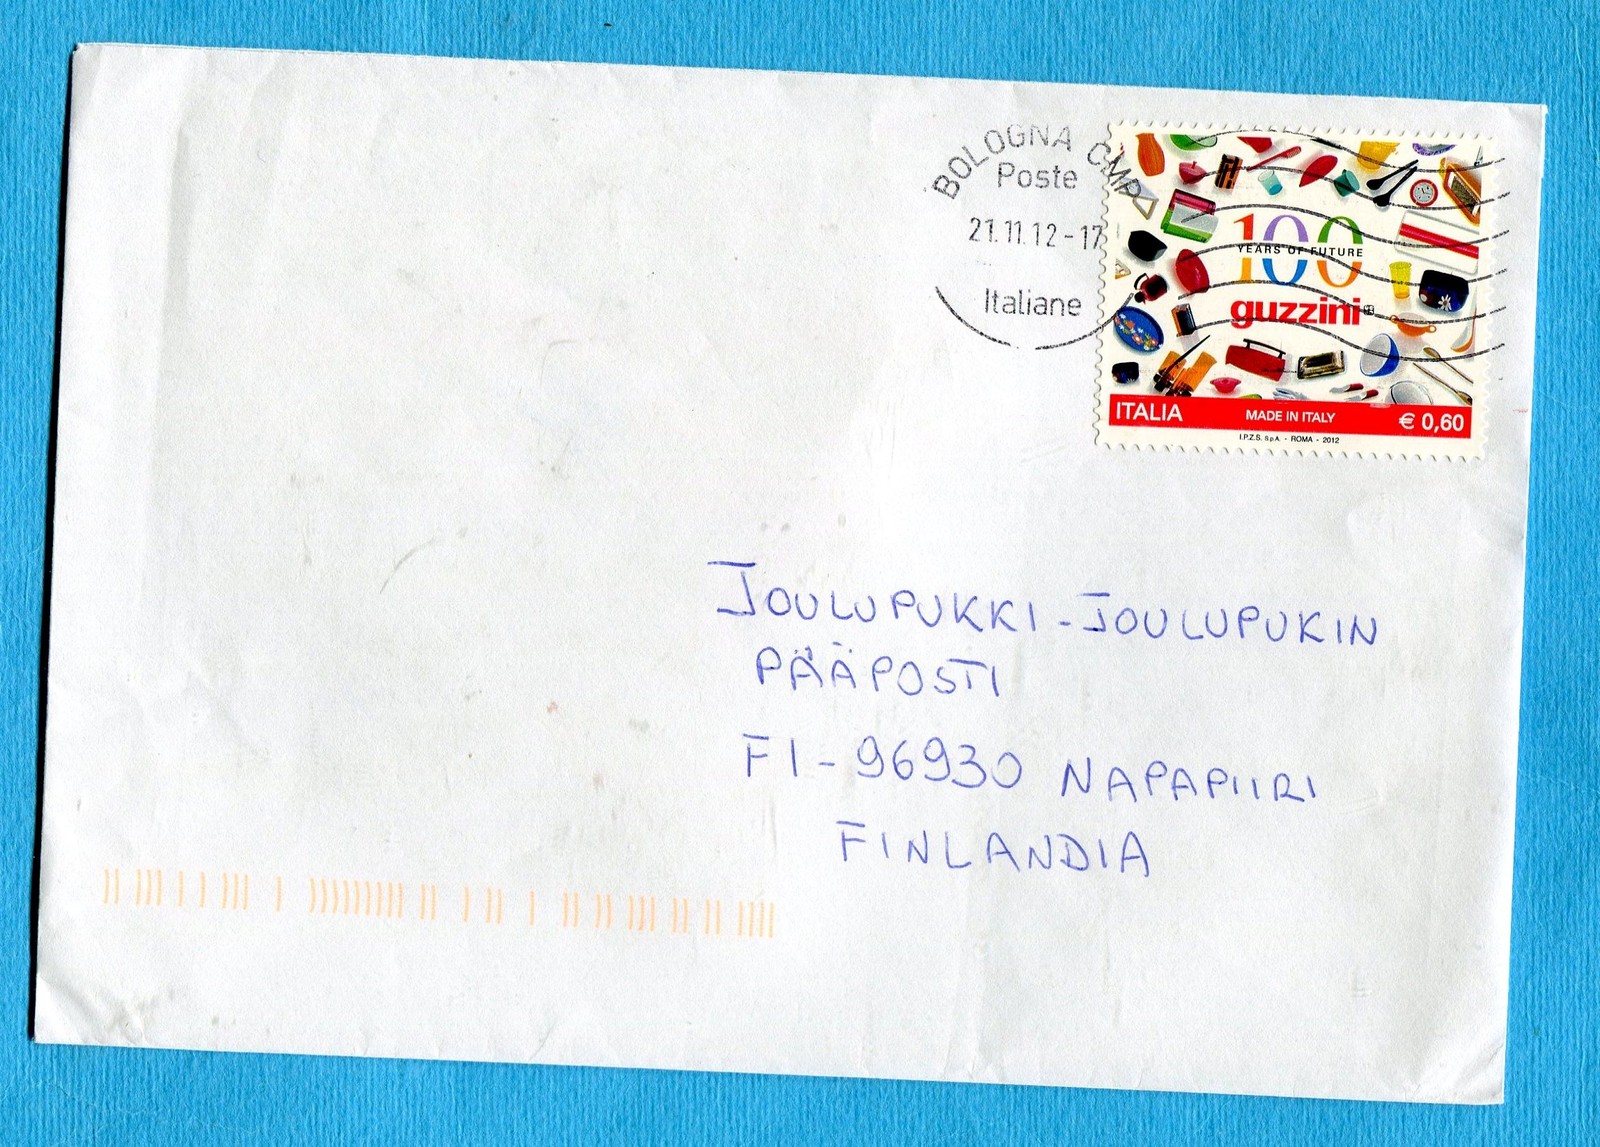 BOLOGNA CMP
Poste
21.11.12-17
Italiane
100
YEARS OF FUTURE
guzzini
ITALIA MADE IN ITALY € 0,60
I.P.Z.S. S.p.A. - ROMA - 2012
JOULUPUKKI-JOULUPUKIN
PÄÄPOSTI
FI-96930 NAPAPIIRI
FINLANDIA